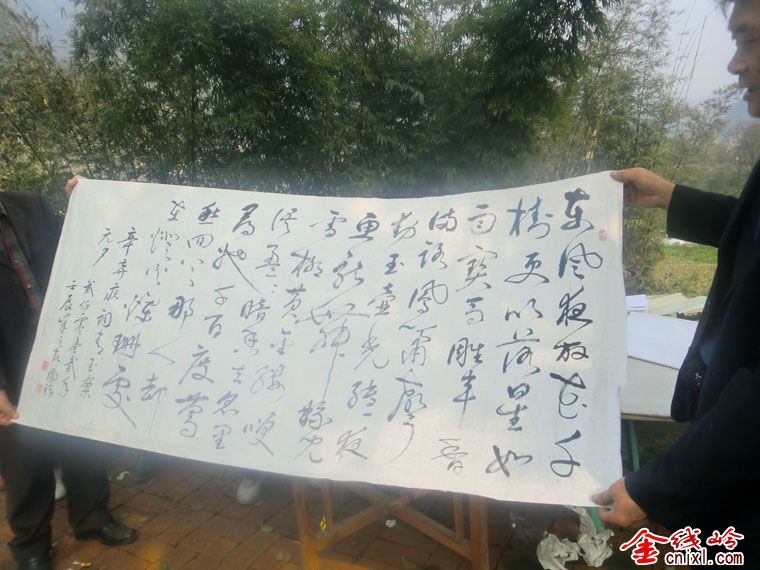 东风夜放花千
树更吹落星如
雨宝马雕车香
满路凤箫声
动玉壶光转夜
鱼龙舞蛾儿
雪柳黄金缕笑
语盈盈暗香去众里
寻他千百度蓦
然回首那人却
在灯火阑珊处
辛弃疾词青玉案
元夕
贰仟零壹贰年
壬辰年
金线岭
cnjxl.com